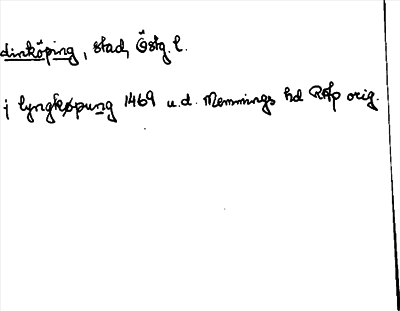 Linköping, stad, Östg. l.
j lyngkøpung 1469 u.d. Memmings hd RAp orig.